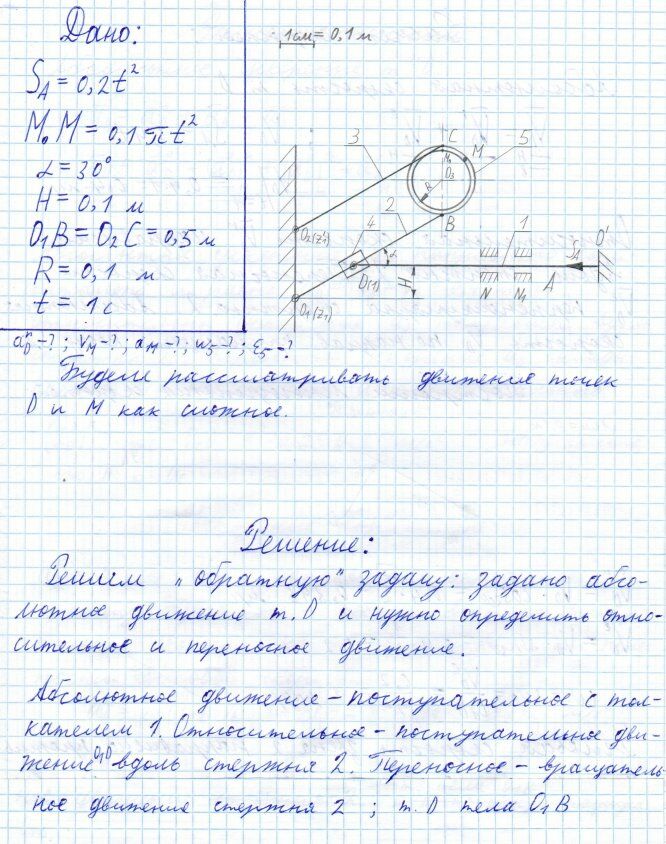 Дано:
1см = 0,1 м
S_A = 0,2t²
M₀M = 0,1πt²
α = 30°
H = 0,1 м
O₁B = O₂C = 0,5 м
R = 0,1 м
t = 1c
C
M
5
3
M₀
O₃
R
2
B
4
1
O₂(z₁')
α
O'
S_A
D(1)
H
N
N₁
A
O₁(z₁)
a_D^r -?; V_M -?; a_M -?; ω₅ -?; ε₅ -?
Будем рассматривать движения точек
D и M как сложное.
Решение:
Решим „обратную" задачу: задано абсо-
лютное движение т. D и нужно определить отно-
сительное и переносное движение.
Абсолютное движение – поступательное с тол-
кателем 1. Относительное – поступательное дви-
жение O₁D вдоль стержня 2. Переносное – вращатель-
ное движение стержня 2 ; т. D тела O₁B